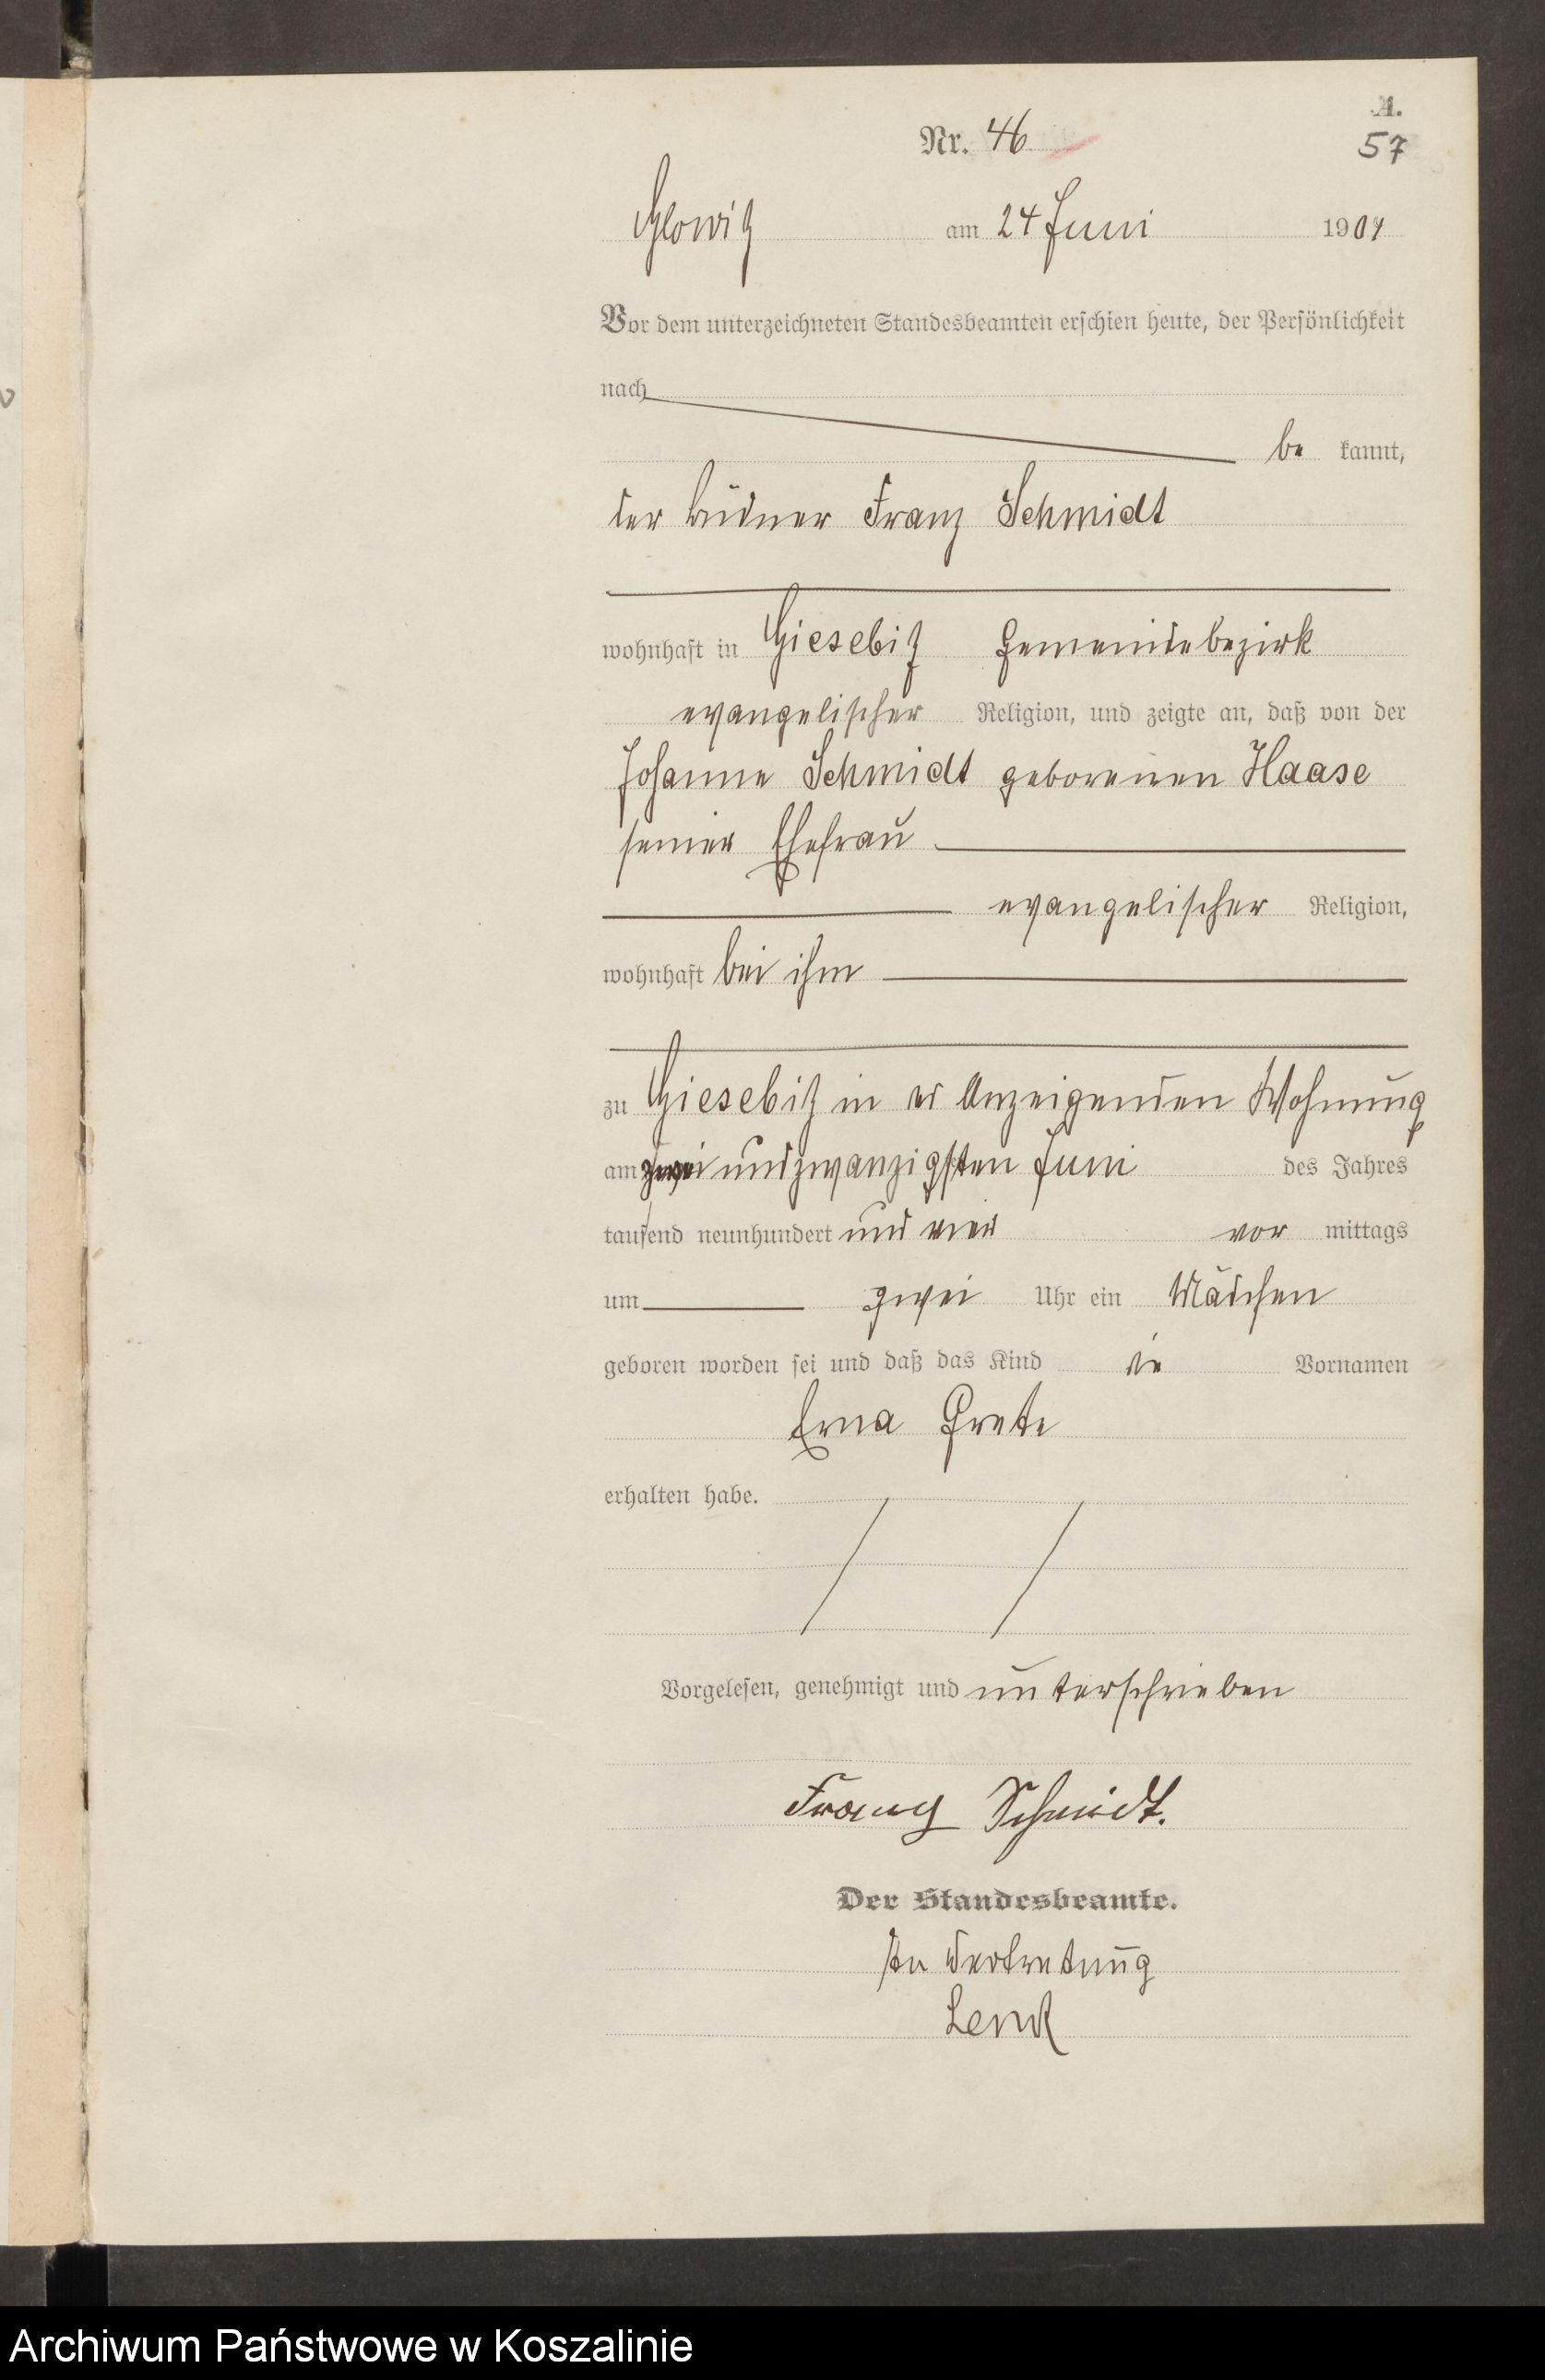 A.
Nr. 46
57
Glowitz am 24 Juni 1904
Vor dem unterzeichneten Standesbeamten erschien heute, der Persönlichkeit
nach
be kannt,
der Büdner Franz Schmidt
wohnhaft in Giesebitz Gemeindebezirk
evangelischer Religion, und zeigte an, daß von der
Johanne Schmidt geborenen Haase
seiner Ehefrau
evangelischer Religion,
wohnhaft bei ihm
zu Giesebitz in des Anzeigenden Wohnung
am zwei und zwanzigsten Juni des Jahres
tausend neunhundert und vier vor mittags
um zwei Uhr ein Mädchen
geboren worden sei und daß das Kind die Vornamen
Erna Grete
erhalten habe.
Vorgelesen, genehmigt und unterschrieben
Franz Schmidt.
Der Standesbeamte.
In Vertretung
Lenk
Archiwum Państwowe w Koszalinie